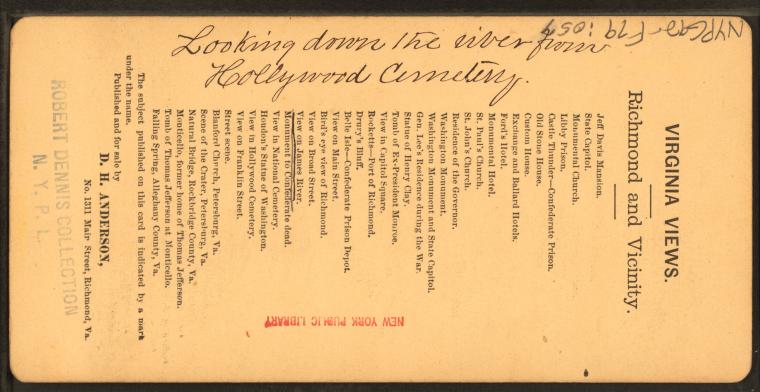 Looking down the river from
Hollywood Cemetery.
NYPG92-F79:057
VIRGINIA VIEWS.
Richmond and Vicinity.
Jeff Davis Mansion.
State Capitol.
Monumental Church.
Libby Prison.
Castle Thunder—Confederate Prison.
Old Stone House.
Custom House.
Exchange and Ballard Hotels.
Ford's Hotel.
Monumental Hotel.
St. Paul's Church.
St. John's Church.
Residence of the Governor.
Washington Monument.
Washington Monument and State Capitol.
Gen. Lee's Residence during the War.
Statue of Henry Clay.
Tomb of Ex-President Monroe.
View in Capitol Square.
Rocketts—Port of Richmond.
Drury's Bluff.
Belle Isle—Confederate Prison Depot.
View on Main Street.
Bird's eye view of Richmond.
View on Broad Street.
View on James River.
Monument to Confederate dead.
View in National Cemetery.
Houdon's Statue of Washington.
View in Hollywood Cemetery.
View on Franklin Street.
Street scene.
Blanford Church, Petersburg, Va.
Scene of the Crater, Petersburg, Va.
Natural Bridge, Rockbridge County, Va.
Monticello, former home of Thomas Jefferson.
Tomb of Thomas Jefferson at Monticello.
Falling Spring, Alleghany County, Va.
The subject published on this card is indicated by a mark
under the name.
Published and for sale by
D. H. ANDERSON,
No. 1311 Main Street, Richmond, Va.
ROBERT DENNIS COLLECTION
N. Y. P. L.
NEW YORK PUBLIC LIBRARY